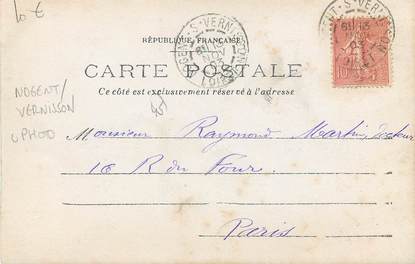 10 €
RÉPUBLIQUE FRANÇAISE
NOGENT-S-VERNISSON
LOIRET
CARTE POSTALE
Ce côté est exclusivement réservé à l'adresse
NOGENT/
VERNISSON
CPHOTO
45
Monsieur Raymond Martin, docteur
16 R du Four.
Paris